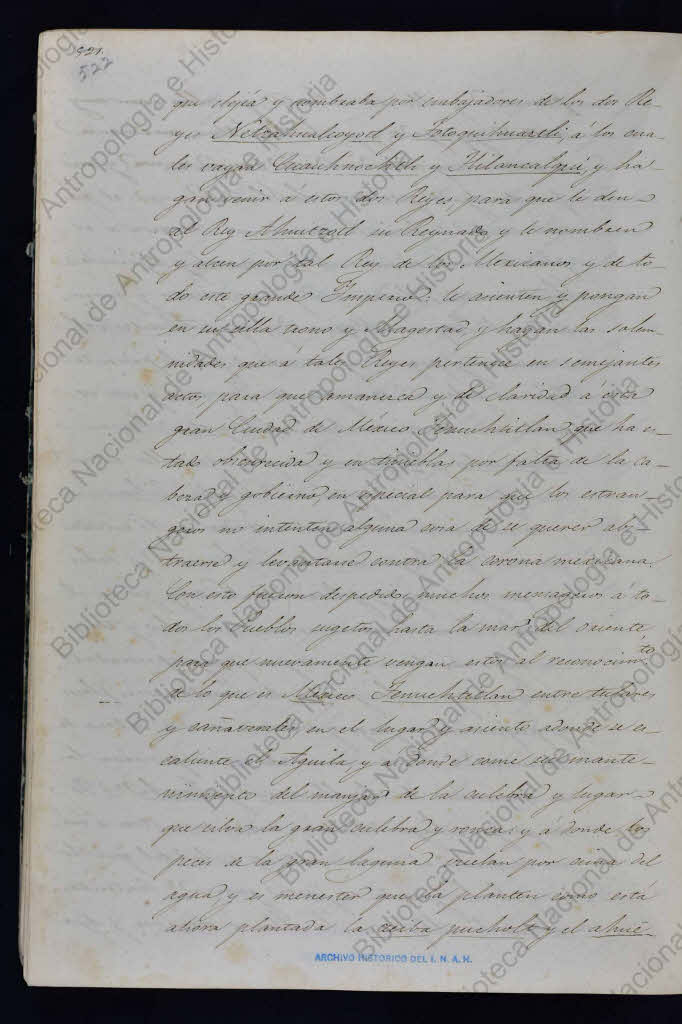 521.
522
que elejia y nombraba por embajadores de los dos Re-
yes Netzahualcoyotl y Totoquihuaztli, á los cua-
les vayan Cuauhnochtli y Tlilancalqui, y ha-
gan venir á estos dos Reyes para que le den
al Rey Ahuitzotl su Reynado y le nombren
y alcen por tal Rey de los Mexicanos y de to-
do este grande Imperio: le asienten y pongan
en su silla trono y Magestad, y hagan las solem-
nidades que á tales Reyes pertenece en semejantes
actos para que amanezca y dé claridad á esta
gran Ciudad de México Tenuchtitlan que ha es-
tado obscurecida y en tinieblas por falta de la ca-
beza y gobierno, en especial para que los estran-
geros no intenten alguna cosa de se querer abs-
traerse y levantarse contra la corona mexicana.
Con esto fueron despedidos muchos mensageros á to-
dos los Pueblos sugetos hasta la mar del oriente
para que nuevamente vengan estos al reconocimto
de lo que es México Tenuchtitlan entre tulares
y cañaverales en el lugar y asiento adonde se es-
caliente el Aguila, y adonde come su mante-
nimiento del manjar de la culebra y lugar
que silva la gran culebra y ronca: y á donde los
peces de la gran laguna vuelan por cima del
agua, y es menester que la planten como está
ahora plantada la ceiba puchotl y el ahue-
ARCHIVO HISTORICO DEL I. N. A. H.
Biblioteca Nacional de Antropología e Historia